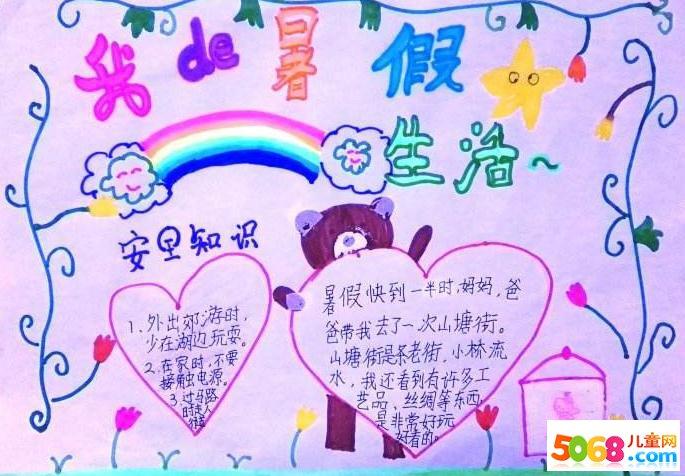 我de暑假
生活~
安里知识
1、外出郊游时,
少在湖边玩耍。
2、在家时,不要
接触电源。
3、过马路
时走人
行
暑假快到一半时,妈妈,爸
爸带我去了一次山塘街。
山塘街是条老街,小林流
水,我还看到有许多工
艺品、丝绸等东西,
是非常好玩
好看的。
5068儿童网
www.5068.com